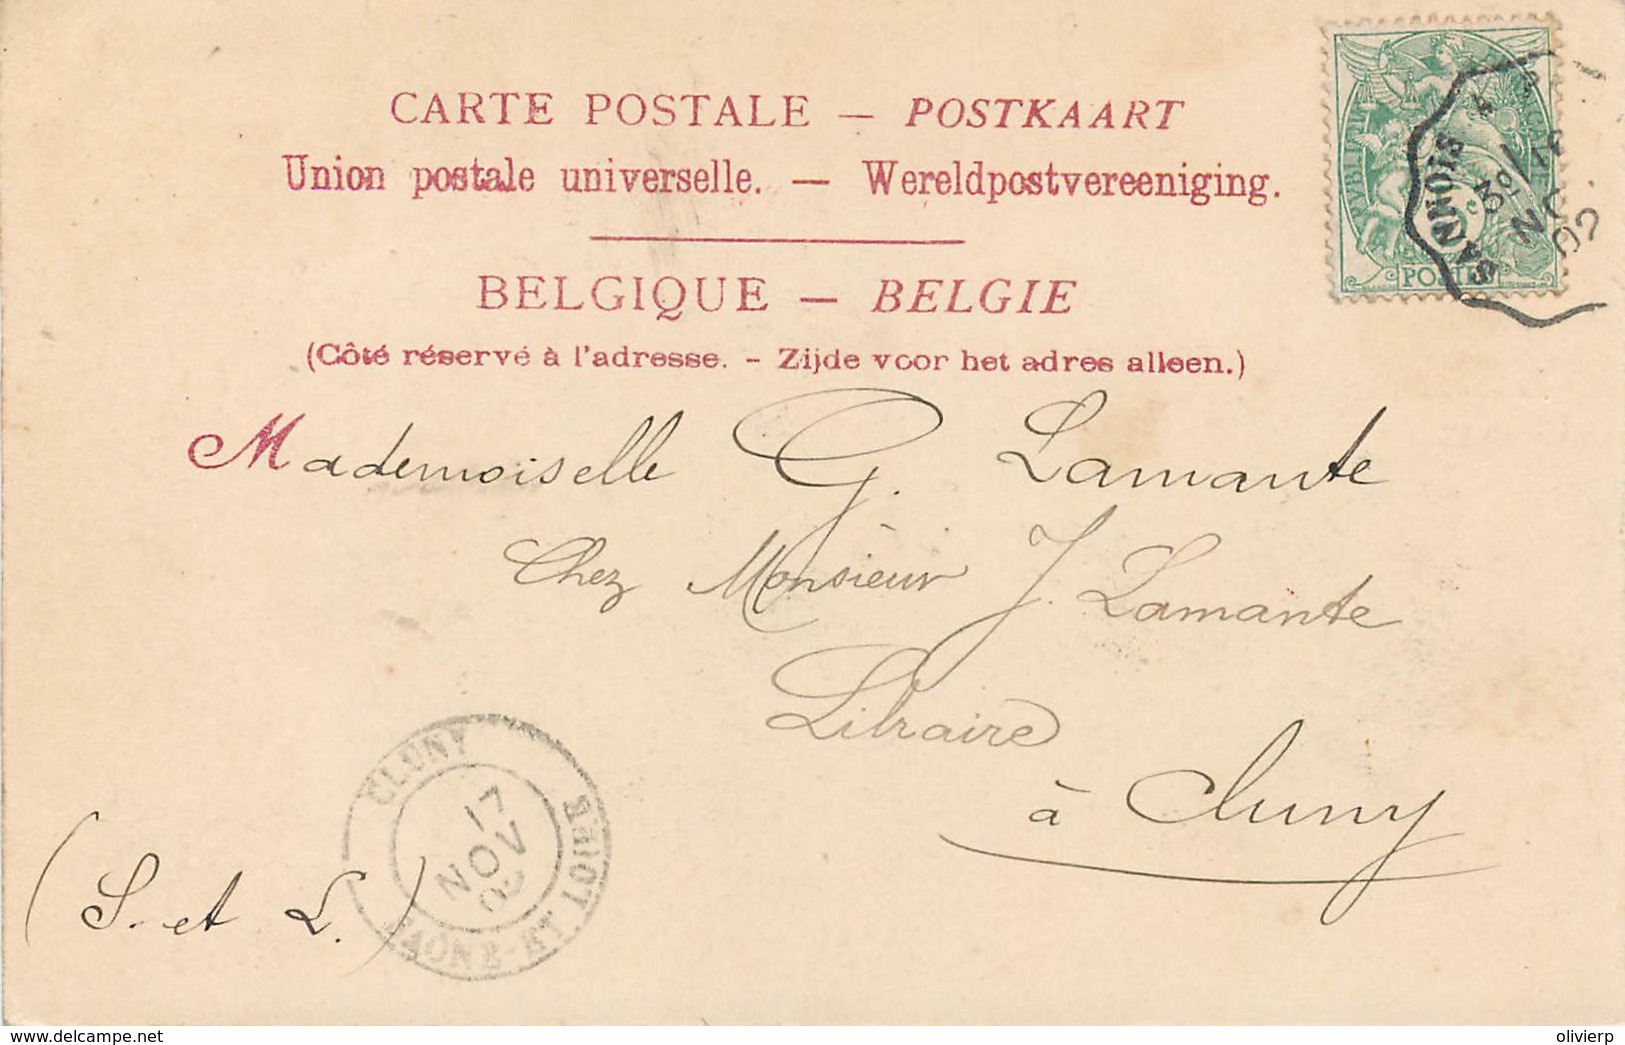 CARTE POSTALE — POSTKAART
Union postale universelle. — Wereldpostvereeniging.
BELGIQUE — BELGIE
(Côté réservé à l'adresse. - Zijde voor het adres alleen.)
POSTES
02
Mademoiselle G. Lamante
Chez Monsieur J. Lamante
Libraire
à Cluny
(S. et L.)
CLUNY
17
NOV
02
SAÔNE-ET-LOIRE
www.delcampe.net
olivierp